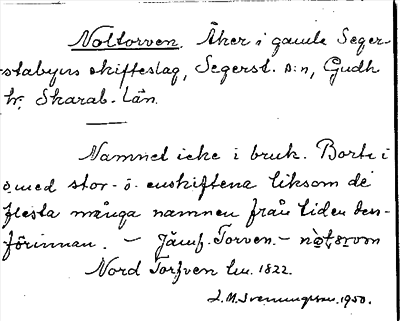 Noltorven. Åker i gamla Seger-
stabyns skifteslag, Segerst. s:n, Gudh
hr. Skarab. Län.
Namnet icke i bruk. Borta i
o med stor- o. enskiftena liksom de
flesta många namnen från tiden den-
förinnan. — Jämf. Torven. —
Nord Torfven hm. 1822.
L. M. Svenungsson. 1950.